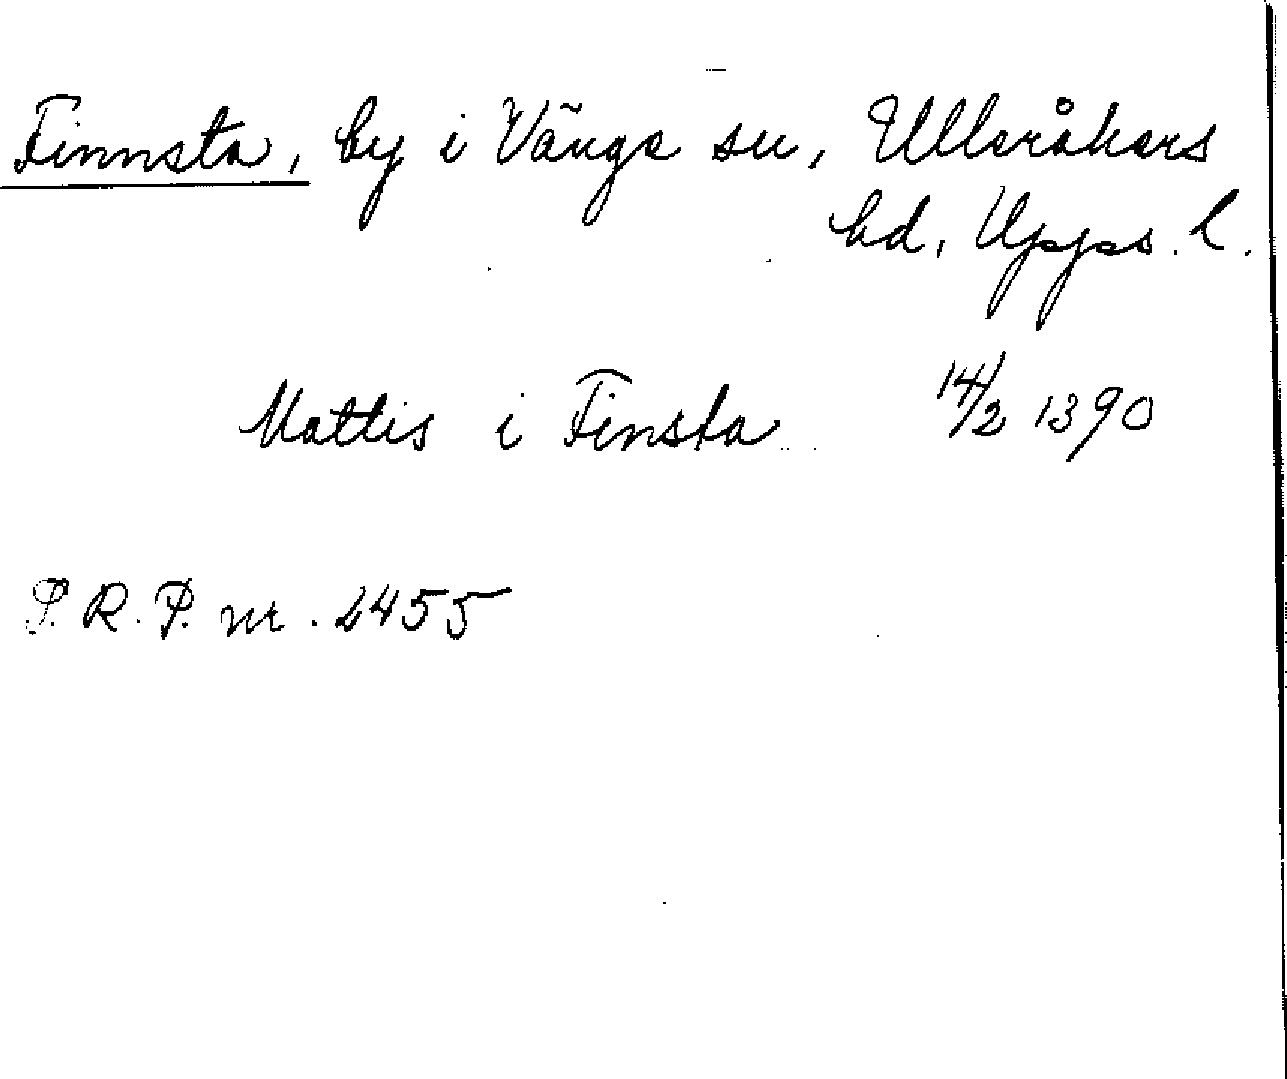 Finnsta, by i Vänge sn, Ulleråkers
hd, Upps. l.
Mattis i Finsta 14/2 1390
P. R. P. nr. 2455